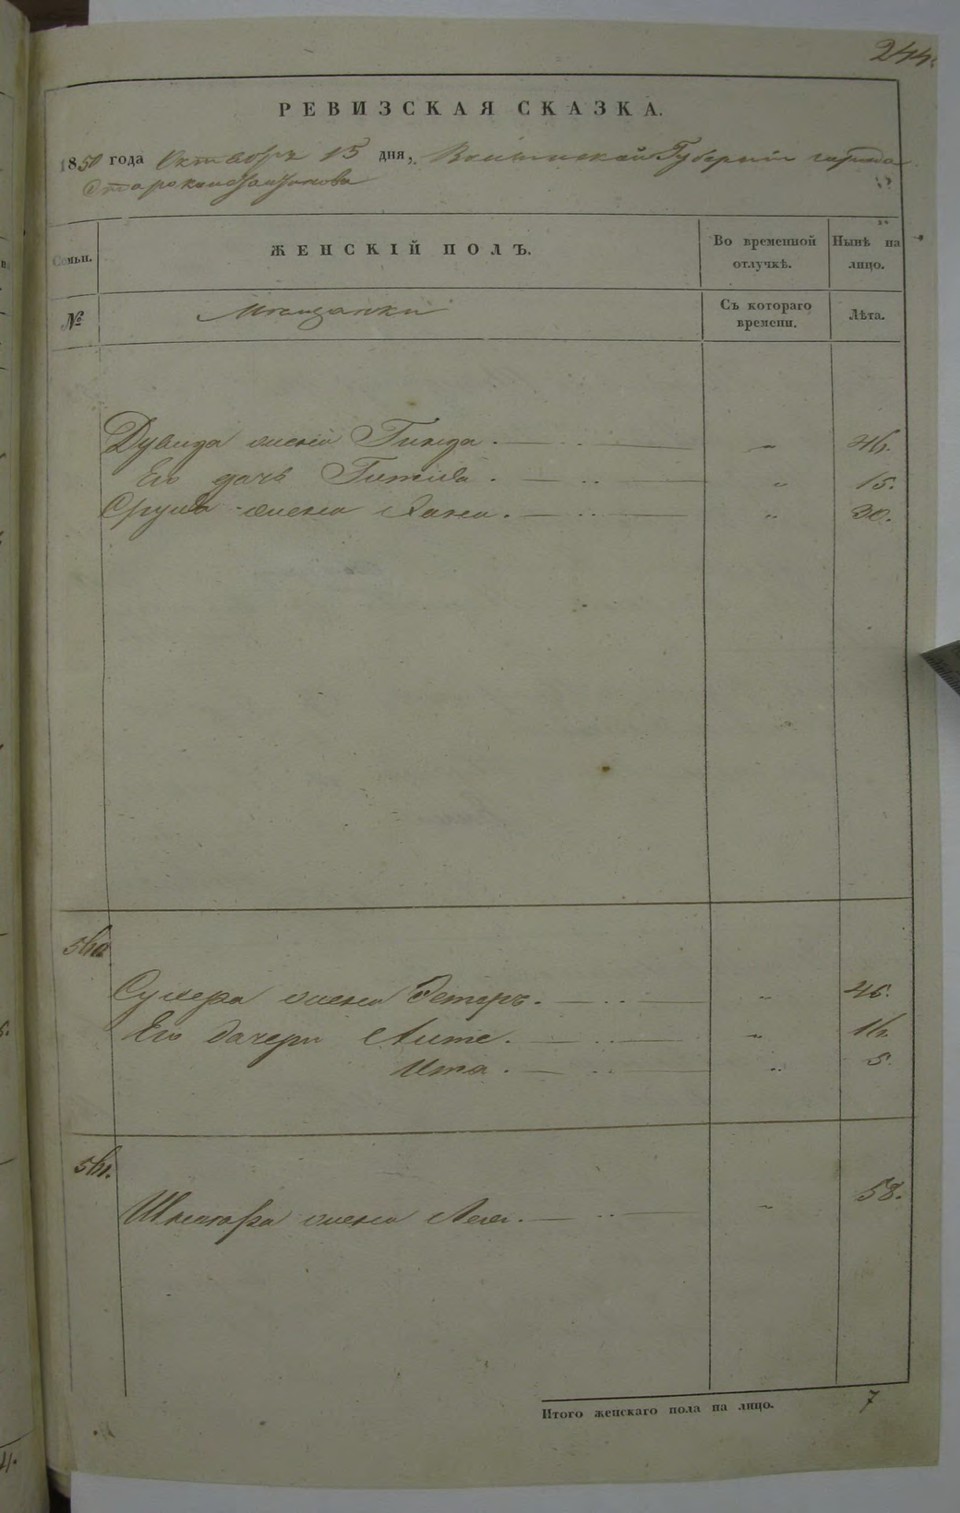 244.
РЕВИЗСКАЯ СКАЗКА.
1850 года Октября 15 дня, Волынской Губернии города
Староконстантинова
Семьи. ЖЕНСКІЙ ПОЛЪ. Во временной отлучкѣ. Нынѣ на лицо.
№ Мещанки Съ котораго времени. Лѣта.
Дувида жена Гинда. 46.
Его дочь Гитля. 15.
Сруля жена Хана. 30.
Сумера жена Естеръ. 46.
Его дочери 16.
Ита. 5.
жена Лея. 58.
Итого женскаго пола на лицо. 7